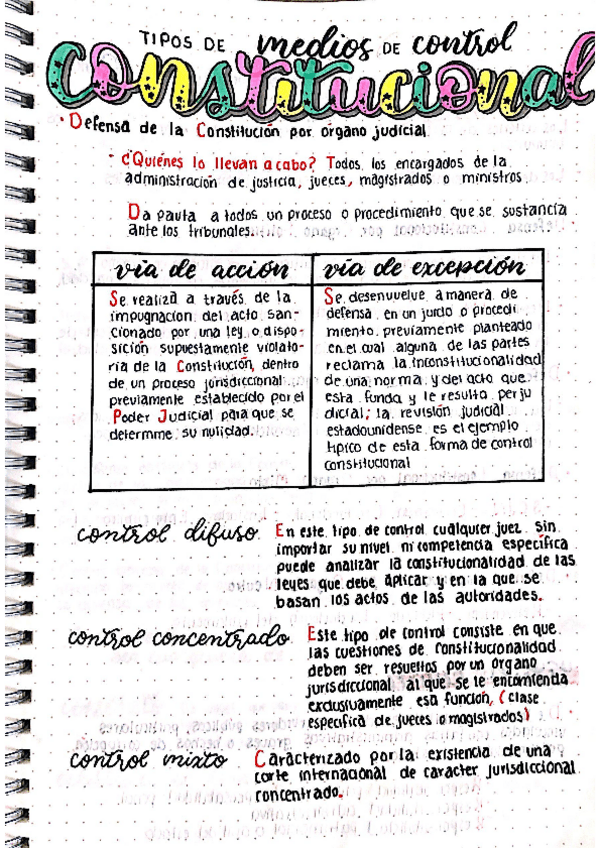 TIPOS DE medios DE control
Constitucional
• Defensa de la Constitución por órgano judicial.
- ¿Quiénes lo llevan a cabo? Todos los encargados de la
administración de justicia, jueces, magistrados o ministros
Da pauta a todos un proceso o procedimiento que se sustancía
ante los tribunales.
vía de acción
Se realiza a través de la
impugnación del acto san-
cionado por una ley o dispo-
sición supuestamente violato-
ria de la Constitución, dentro
de un proceso jurisdiccional
previamente establecido por el
Poder Judicial para que se
determine su nulidad.
vía de excepción
Se desenvuelve a manera de
defensa en un juicio o procedi
miento previamente planteado
en el cual alguna de las partes
reclama la inconstitucionalidad
de una norma y del acto que
esta funda y le resulta perju
dicial; la revisión judicial
estadounidense es el ejemplo
típico de esta forma de control
constitucional
control difuso En este tipo de control cualquier juez sin
importar su nivel ni competencia específica
puede analizar la constitucionalidad de las
leyes que debe aplicar y en la que se
basan los actos de las autoridades.
control concentrado Este tipo de control consiste en que
las cuestiones de constitucionalidad
deben ser resueltos por un órgano
jurisdiccional al que se le encomienda
exclusivamente esa función, (clase
específica de jueces o magistrados)
control mixto Caracterizado por la existencia de una
corte internacional de caracter jurisdiccional
concentrado.